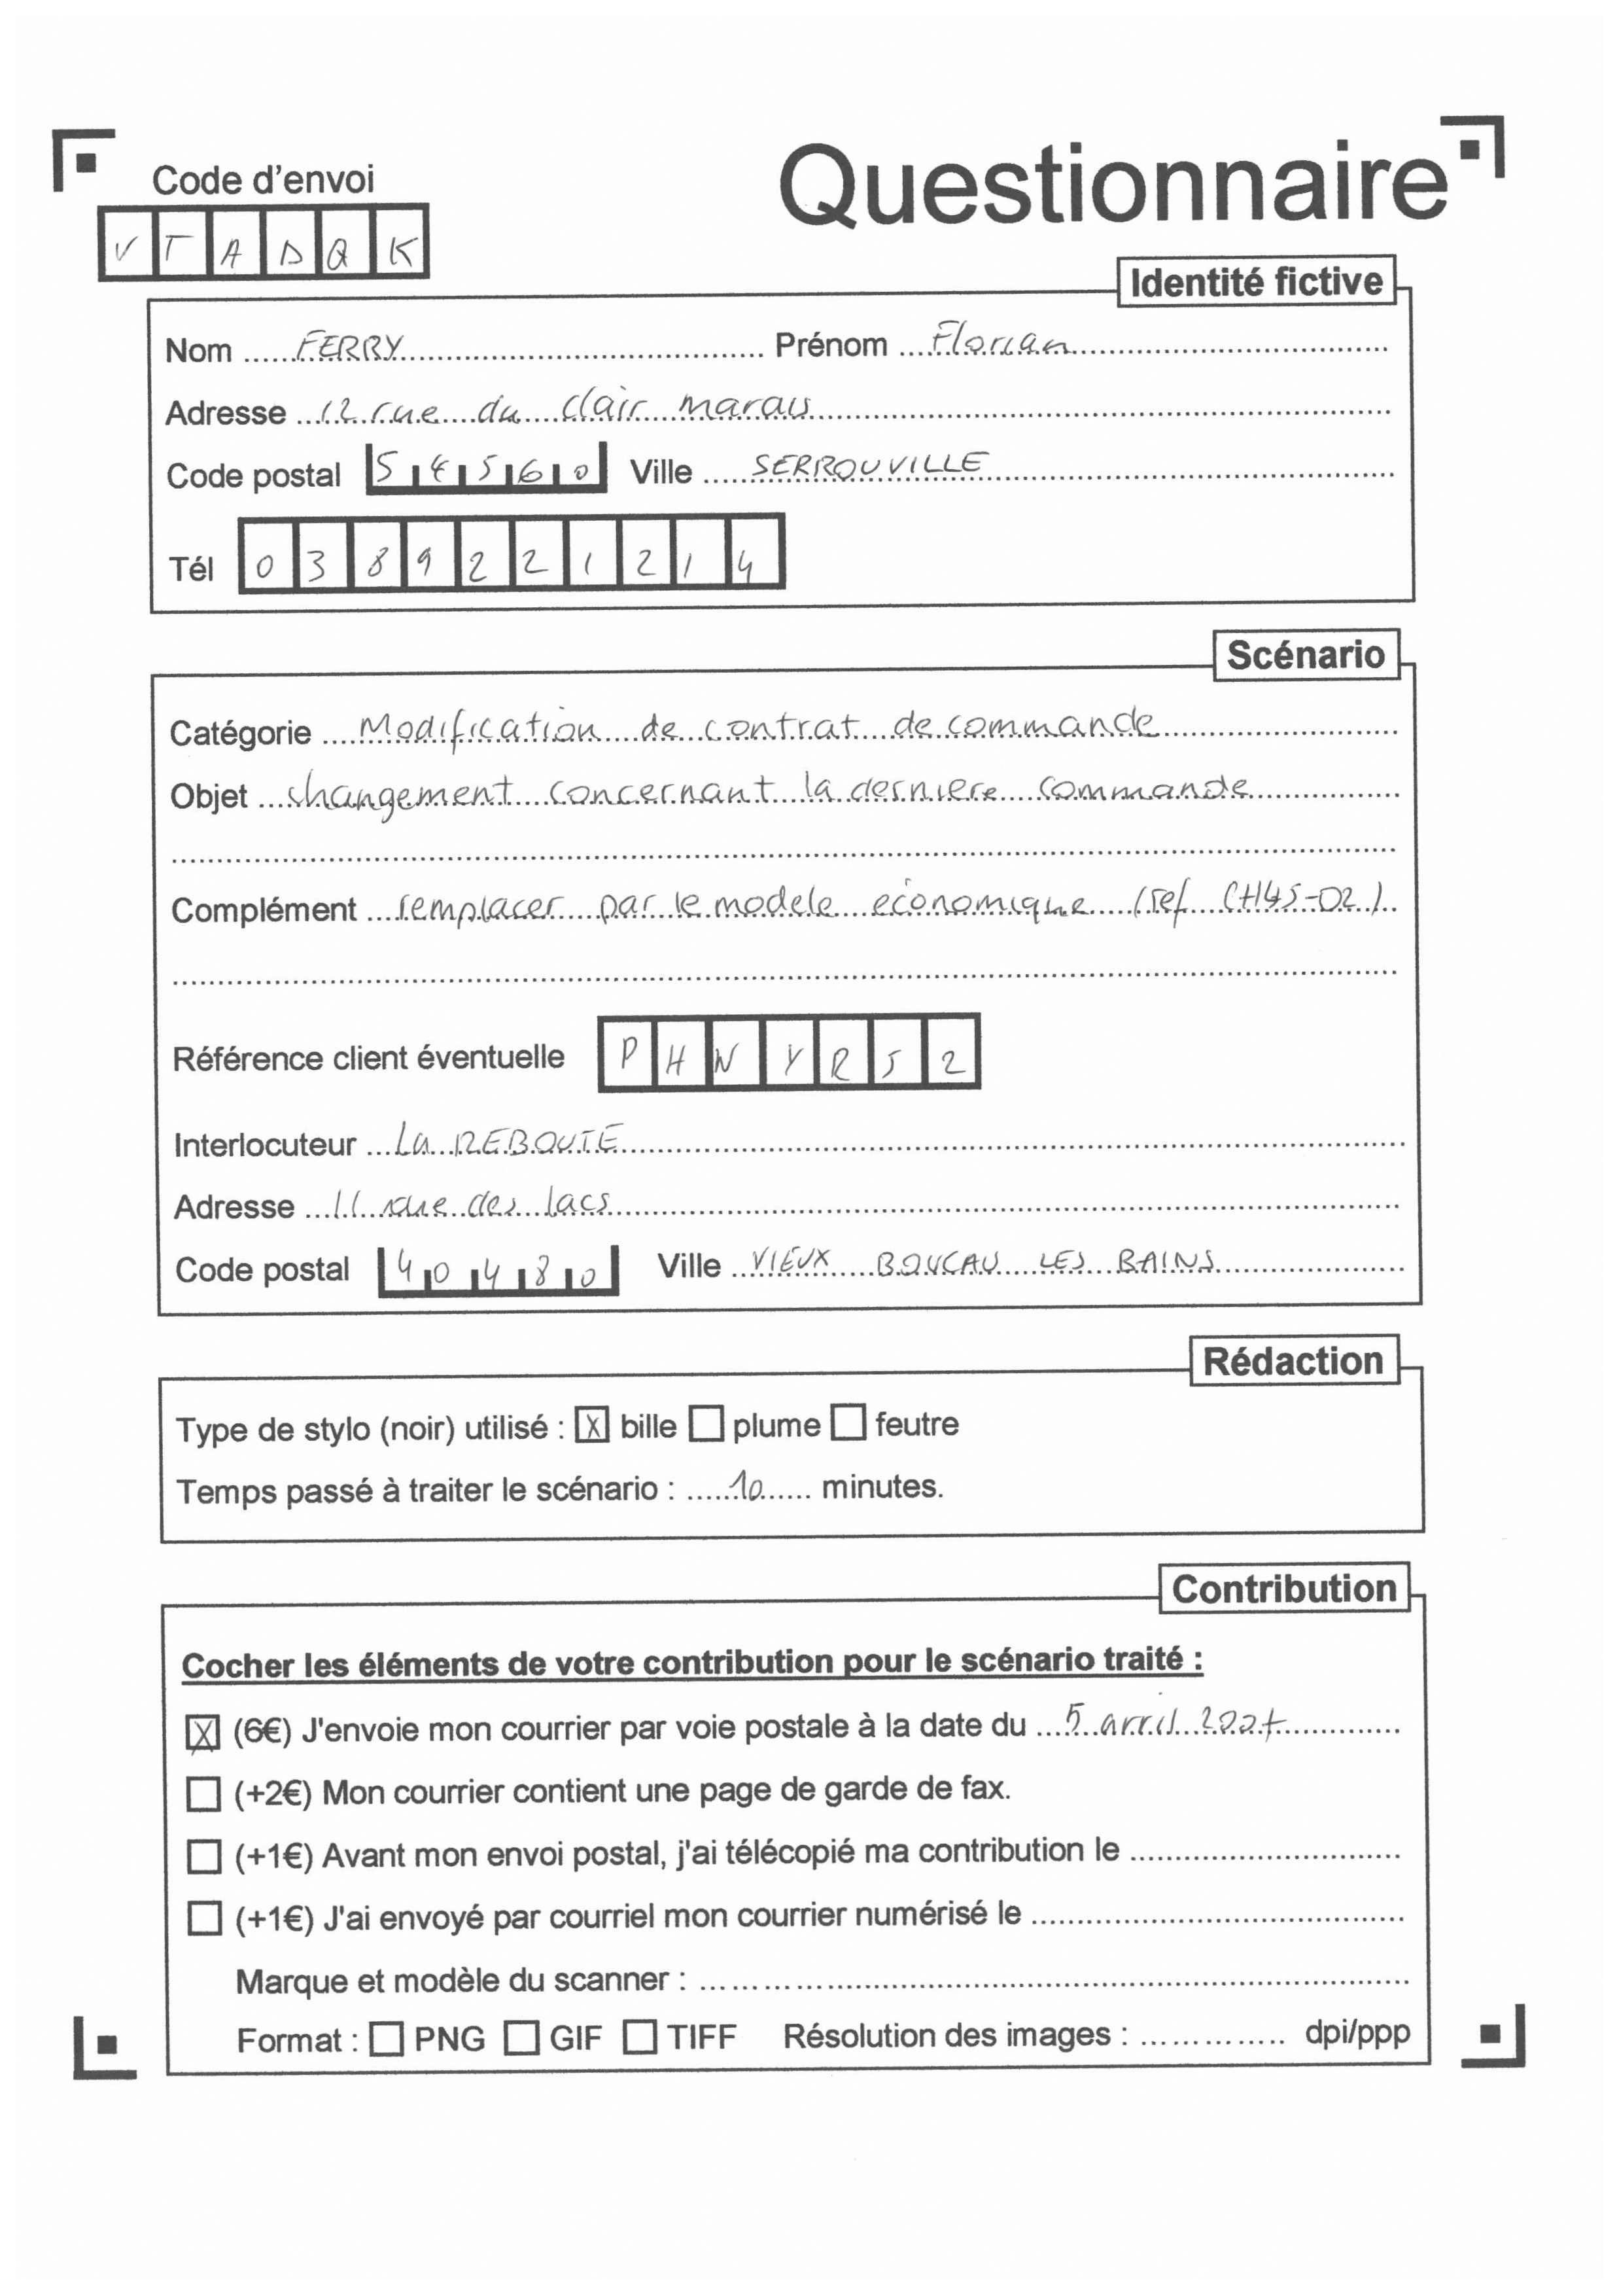 Questionnaire
Code d'envoi
V T A D Q K
Identité fictive
Nom ......FERRY...... Prénom ....Florian......
Adresse ...12 rue du clair marais......
Code postal 54560 Ville ......SERROUVILLE......
Tél 0389221214
Scénario
Catégorie ....Modification de contrat de commande......
Objet ...changement concernant la derniere commande......
Complément ....remplacer par le modele economique (ref CH45-02)..
Référence client éventuelle PHWYR52
Interlocuteur ...La REBOUTE......
Adresse ...11 rue des lacs......
Code postal 40480 Ville ..VIEUX BOUCAU LES BAINS......
Rédaction
Type de stylo (noir) utilisé : ☒ bille ☐ plume ☐ feutre
Temps passé à traiter le scénario : ......10...... minutes.
Contribution
Cocher les éléments de votre contribution pour le scénario traité :
☒ (6€) J'envoie mon courrier par voie postale à la date du ...5 avril 2007......
☐ (+2€) Mon courrier contient une page de garde de fax.
☐ (+1€) Avant mon envoi postal, j'ai télécopié ma contribution le ......
☐ (+1€) J'ai envoyé par courriel mon courrier numérisé le ......
Marque et modèle du scanner : ......
Format : ☐ PNG ☐ GIF ☐ TIFF Résolution des images : ...... dpi/ppp